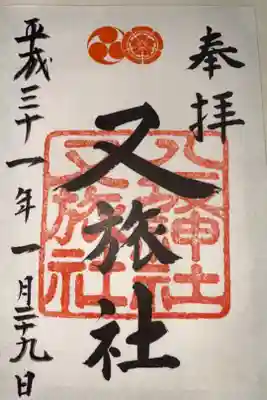 奉拝
又旅社
八坂神社
又旅社
平成三十一年一月二十九日